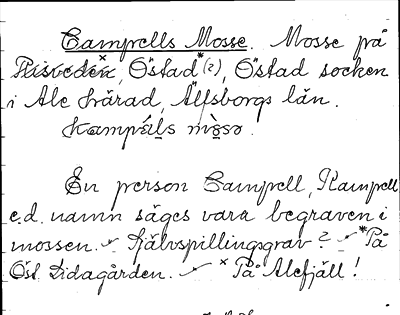 Camprells Mosse. Mosse på
Risveden, Östad*(?), Östad socken
i Ale härad, Älfsborgs län.
Kampéils mòsə.
En person Camprell, Kamprell
e.d. namn säges vara begraven i
mossen. Självspillingsgrav? *På
Öst Lidagården. ˣPå Alefjäll!